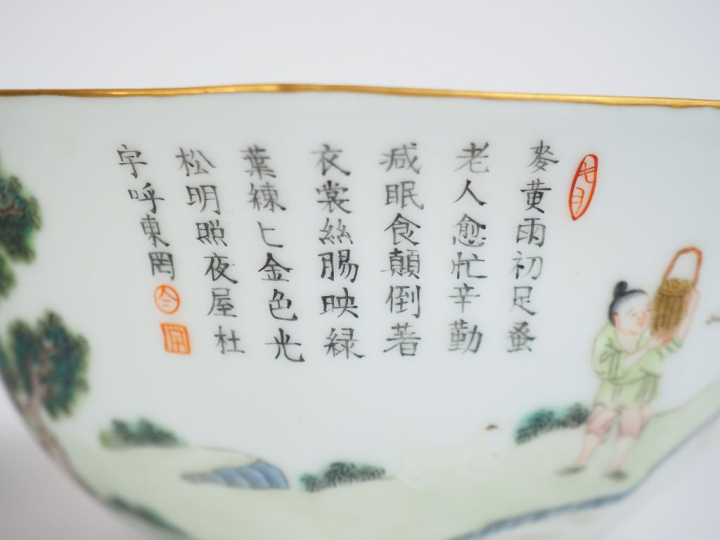 麥黃雨初足蚤
老人愈忙辛勤
减眠食顛倒著
衣裳絲腸映緑
葉練匕金色光
松明照夜屋杜
宇呼東罔